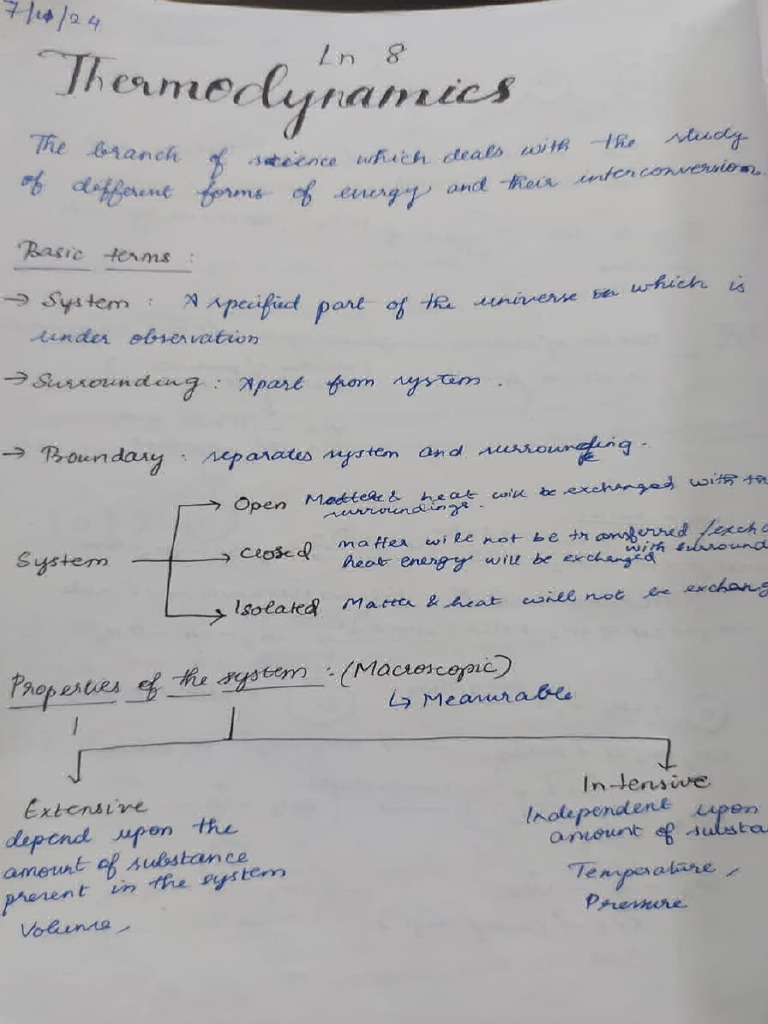 Ln 8
Thermodynamics
The branch of science which deals with the study
of different forms of energy and their interconversion.
Basic terms :
→ System : A specified part of the universe which is
under observation
→ Surrounding : Apart from system .
→ Boundary : separates system and surrounding.
→ Open Matter & heat will be exchanged with
surroundings.
System → closed matter will not be transferred /
heat energy will be exchanged with
→ Isolated Matter & heat will not be
Properties of the system : (Macroscopic)
↳ Measurable
Extensive
depend upon the
amount of substance
present in the system
Volume,
Intensive
Independent upon
amount of
Temperature,
Pressure